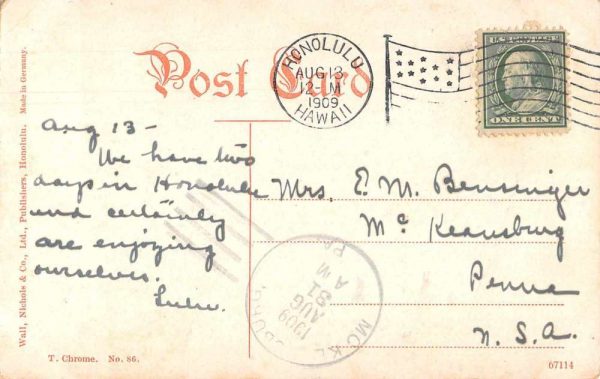 Post Card
HONOLULU
AUG 13
12-M
1909
HAWAII
U.S. POSTAGE
ONE CENT
Aug 13 -
We have two
days in Honolulu
and certainly
are enjoying
ourselves.
Lulu.
Mrs. E. M. Bensinger
Mc Keansburg
Penna
U.S.A.
PA
A M
31
AUG
1909
Wall, Nichols & Co., Ltd., Publishers, Honolulu. Made in Germany.
T. Chrome. No. 86.
67114